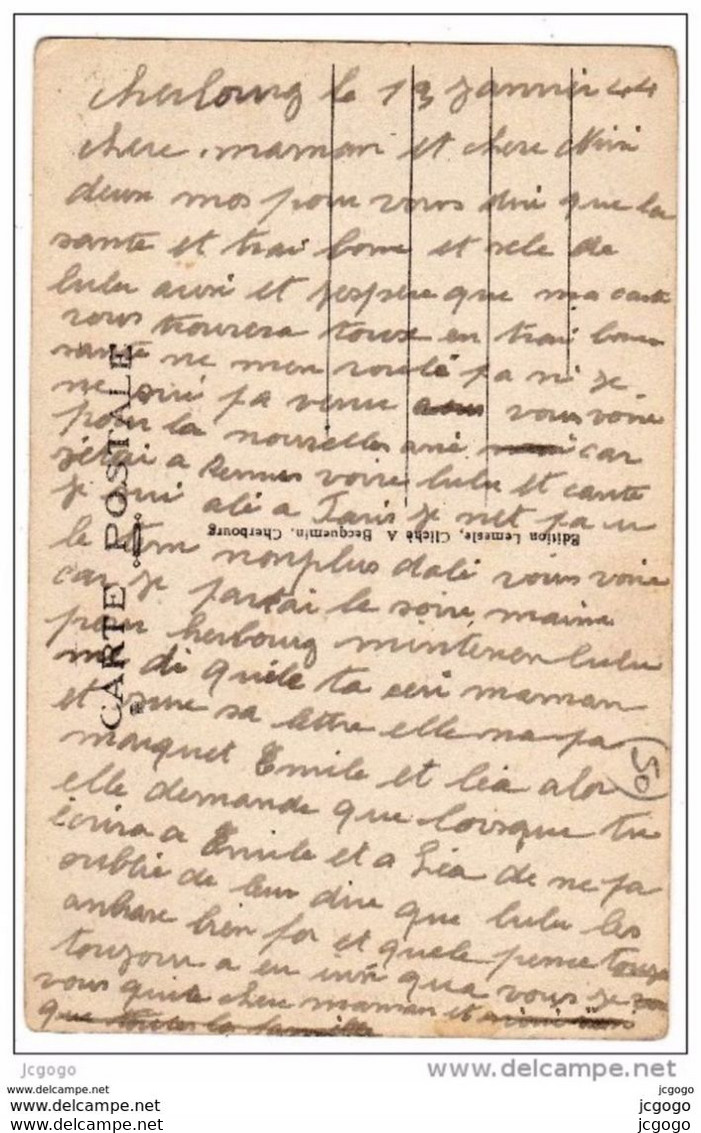 cherbourg le 13 janvier 44
chere maman et chere Mimi
deux mos pour vous dire que la
santé et trai bone et sele de
lulu ausi et jespere que ma carte
vous trouvera touse en trai bone
santé ne men voulé pa si je
ne sui pa venue vous voire
pour la nouvelles ané car
jétai a Rennes voire lulu et cante
je sui alé a Paris je net pa u
le tem nonplus dalé vous voire
car je partai le soire maime
pour cherbourg mintenen lulu
ma di quele ta ceri maman
et sure sa lettre elle na pa
marquet Emile et léa alor
elle demande que lorsque tu
écrira a Emile et a Léa de ne pa
oublié de leur dire que lulu les
anbrase bien for et quele pence touja
toujour a eu insi qua vous je
vous quite chere maman et mimi
que toutes la famille
CARTE POSTALE
Edition Lemesle, Cliché A Becquemin, Cherbourg
50
jcgogo
www.delcampe.net
delcampe.net
jcgogo
www.delcampe.net
jcgogo
jcgogo
www.delcampe.net
jcgogo
www.delcampe.net
jcgogo